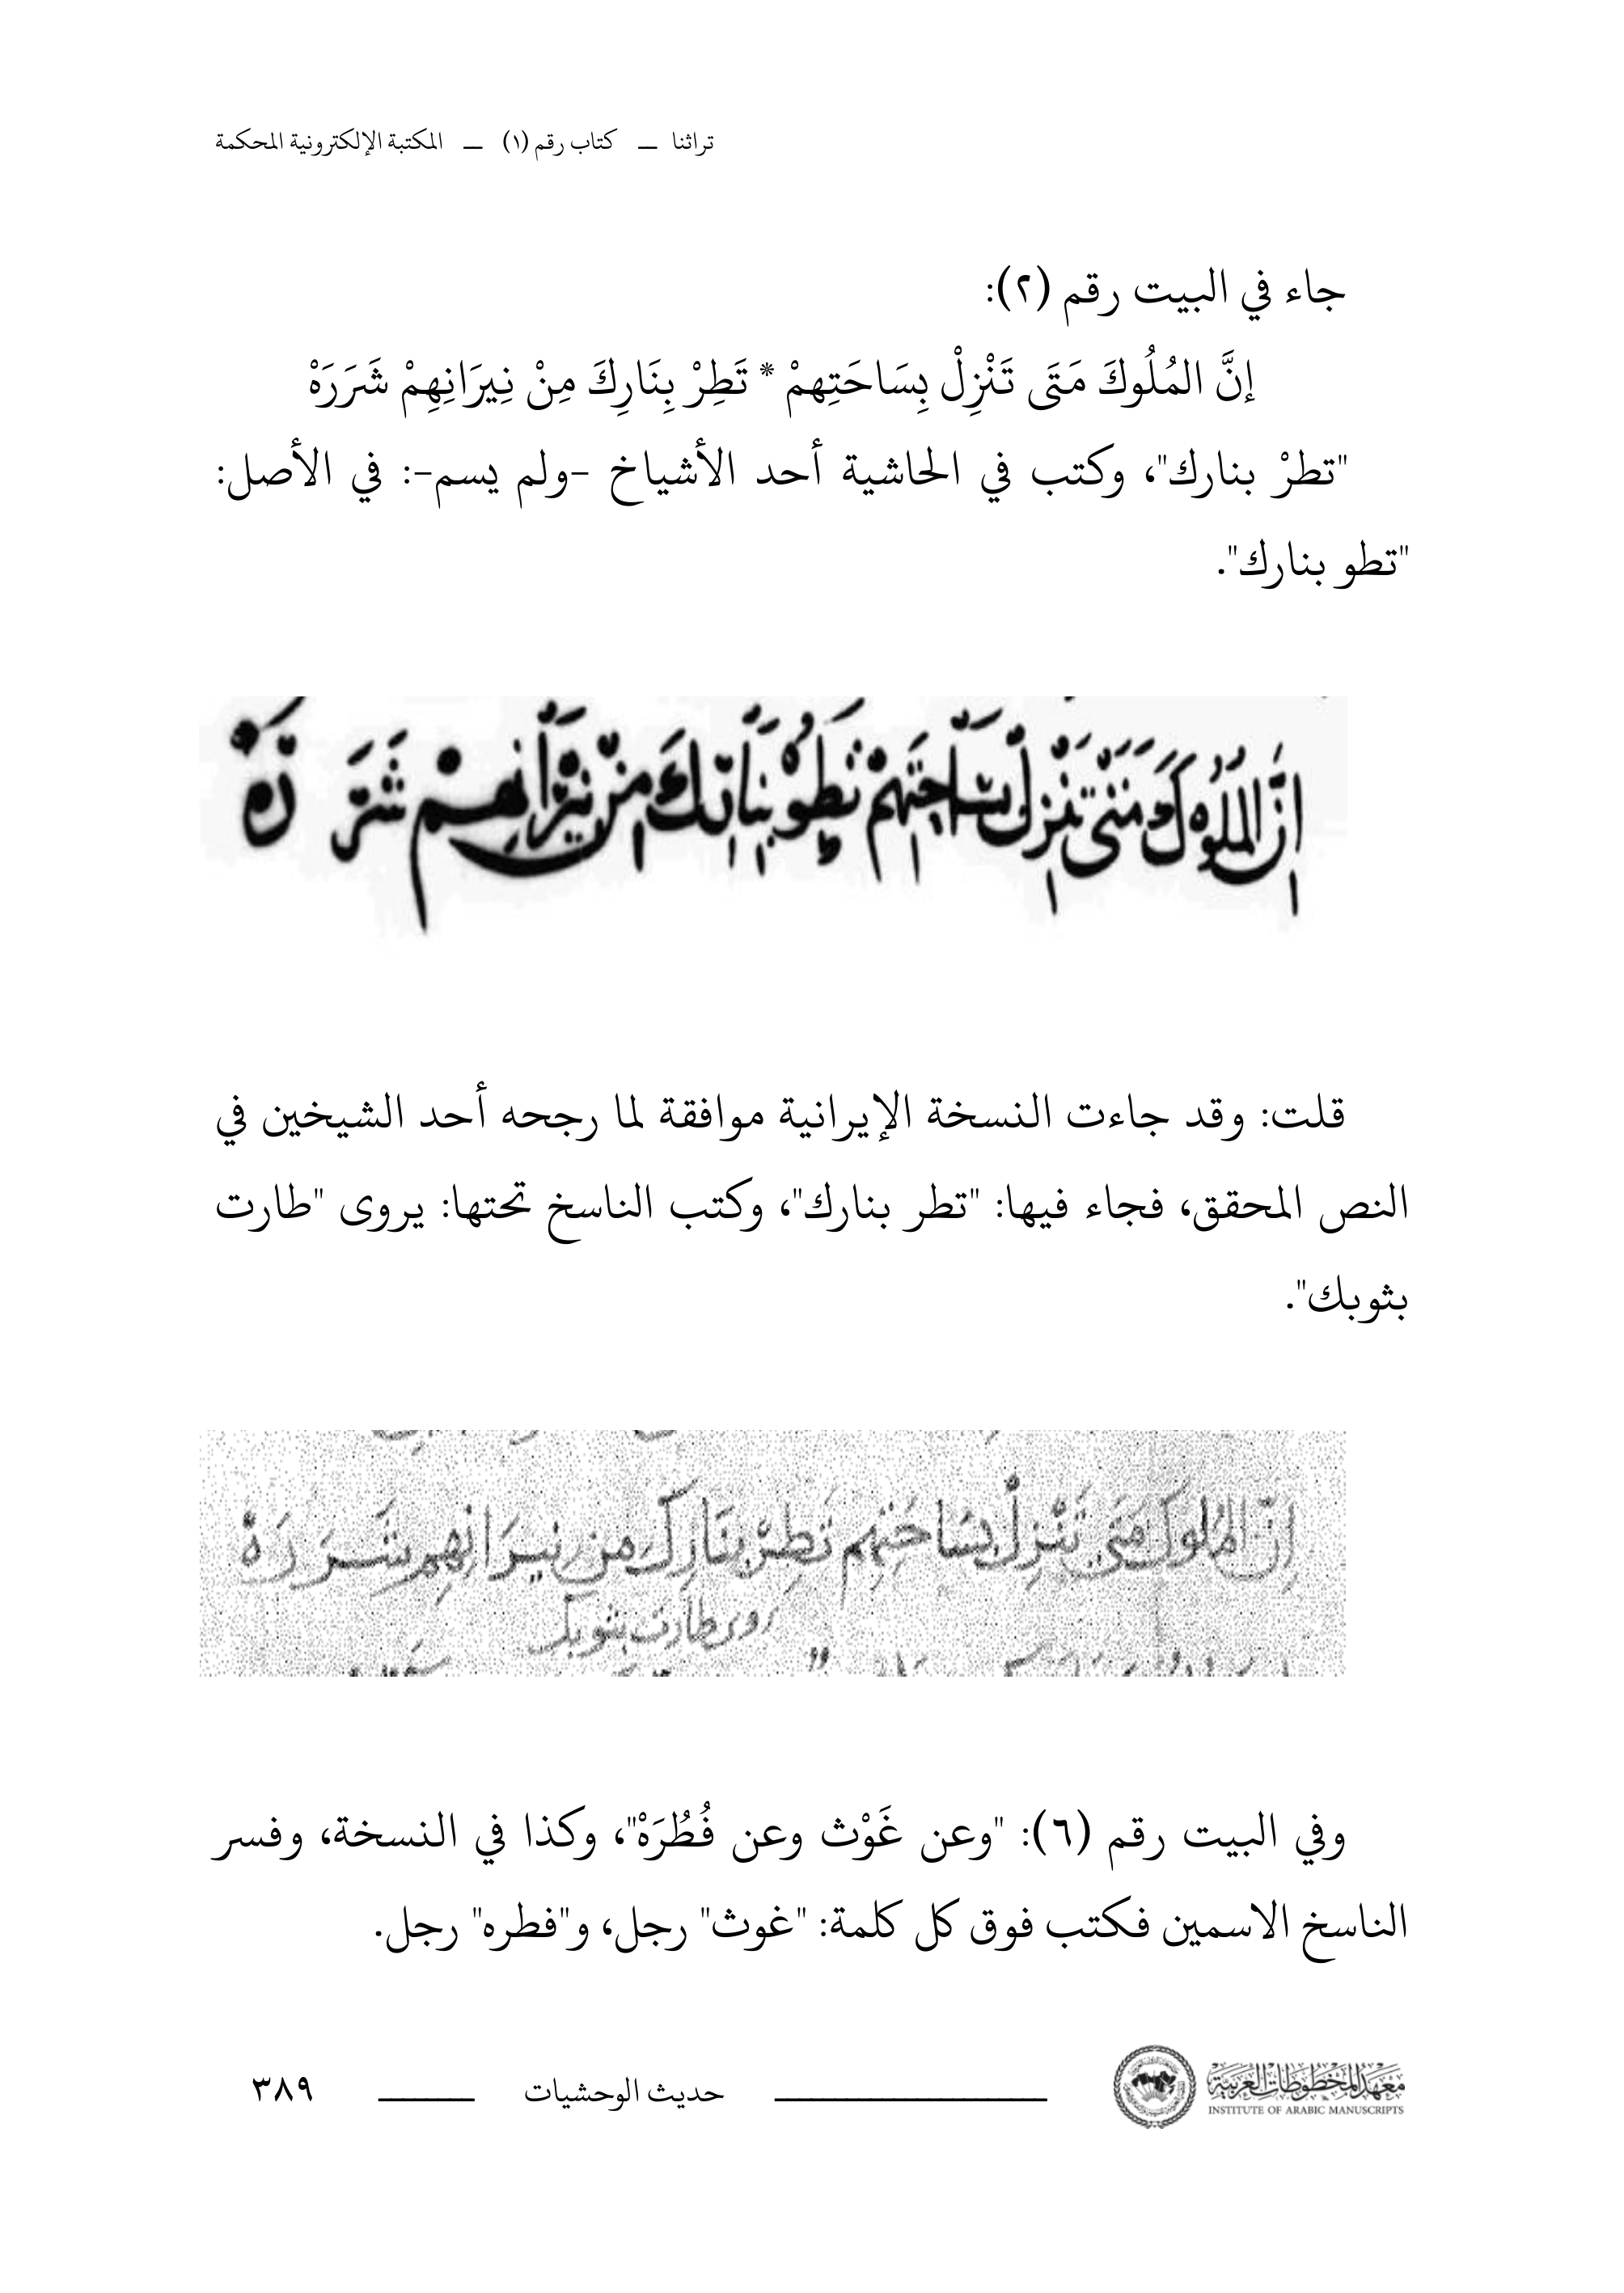 تراثنا ـــ كتاب رقم (١) ـــ المكتبة الإلكترونية المحكمة
جاء في البيت رقم (٢):
إنَّ المُلُوكَ مَتَى تَنْزِلْ بِسَاحَتِهِمْ * تَطِرْ بِنَارِكَ مِنْ نِيرَانِهِمْ شَرَرَهْ
"تطرْ بنارك"، وكتب في الحاشية أحد الأشياخ –ولم يسم–: في الأصل:
"تطو بنارك".
انَّ المُلُوكَ مَتَى تَنْزِلْ بِسَاحَتِهِمْ تَطُوْ مِنْ نِيْرَانِهِمْ شَرَرَهْ
قلت: وقد جاءت النسخة الإيرانية موافقة لما رجحه أحد الشيخين في
النص المحقق، فجاء فيها: "تطر بنارك"، وكتب الناسخ تحتها: يروى "طارت
بثوبك".
اِنَّ المُلوكَ مَتَى تَنْزِلْ بِسَاحَتِهِم تَطِرْ بِنَارِكَ مِن نِيرَانِهِم شَرَرَهْ
روى طارت بثوبك
وفي البيت رقم (٦): "وعن غَوْث وعن فُطُرَهْ"، وكذا في النسخة، وفسر
الناسخ الاسمين فكتب فوق كل كلمة: "غوث" رجل، و"فطره" رجل.
معهد المخطوطات العربية
INSTITUTE OF ARABIC MANUSCRIPTS
حديث الوحشيات
٣٨٩